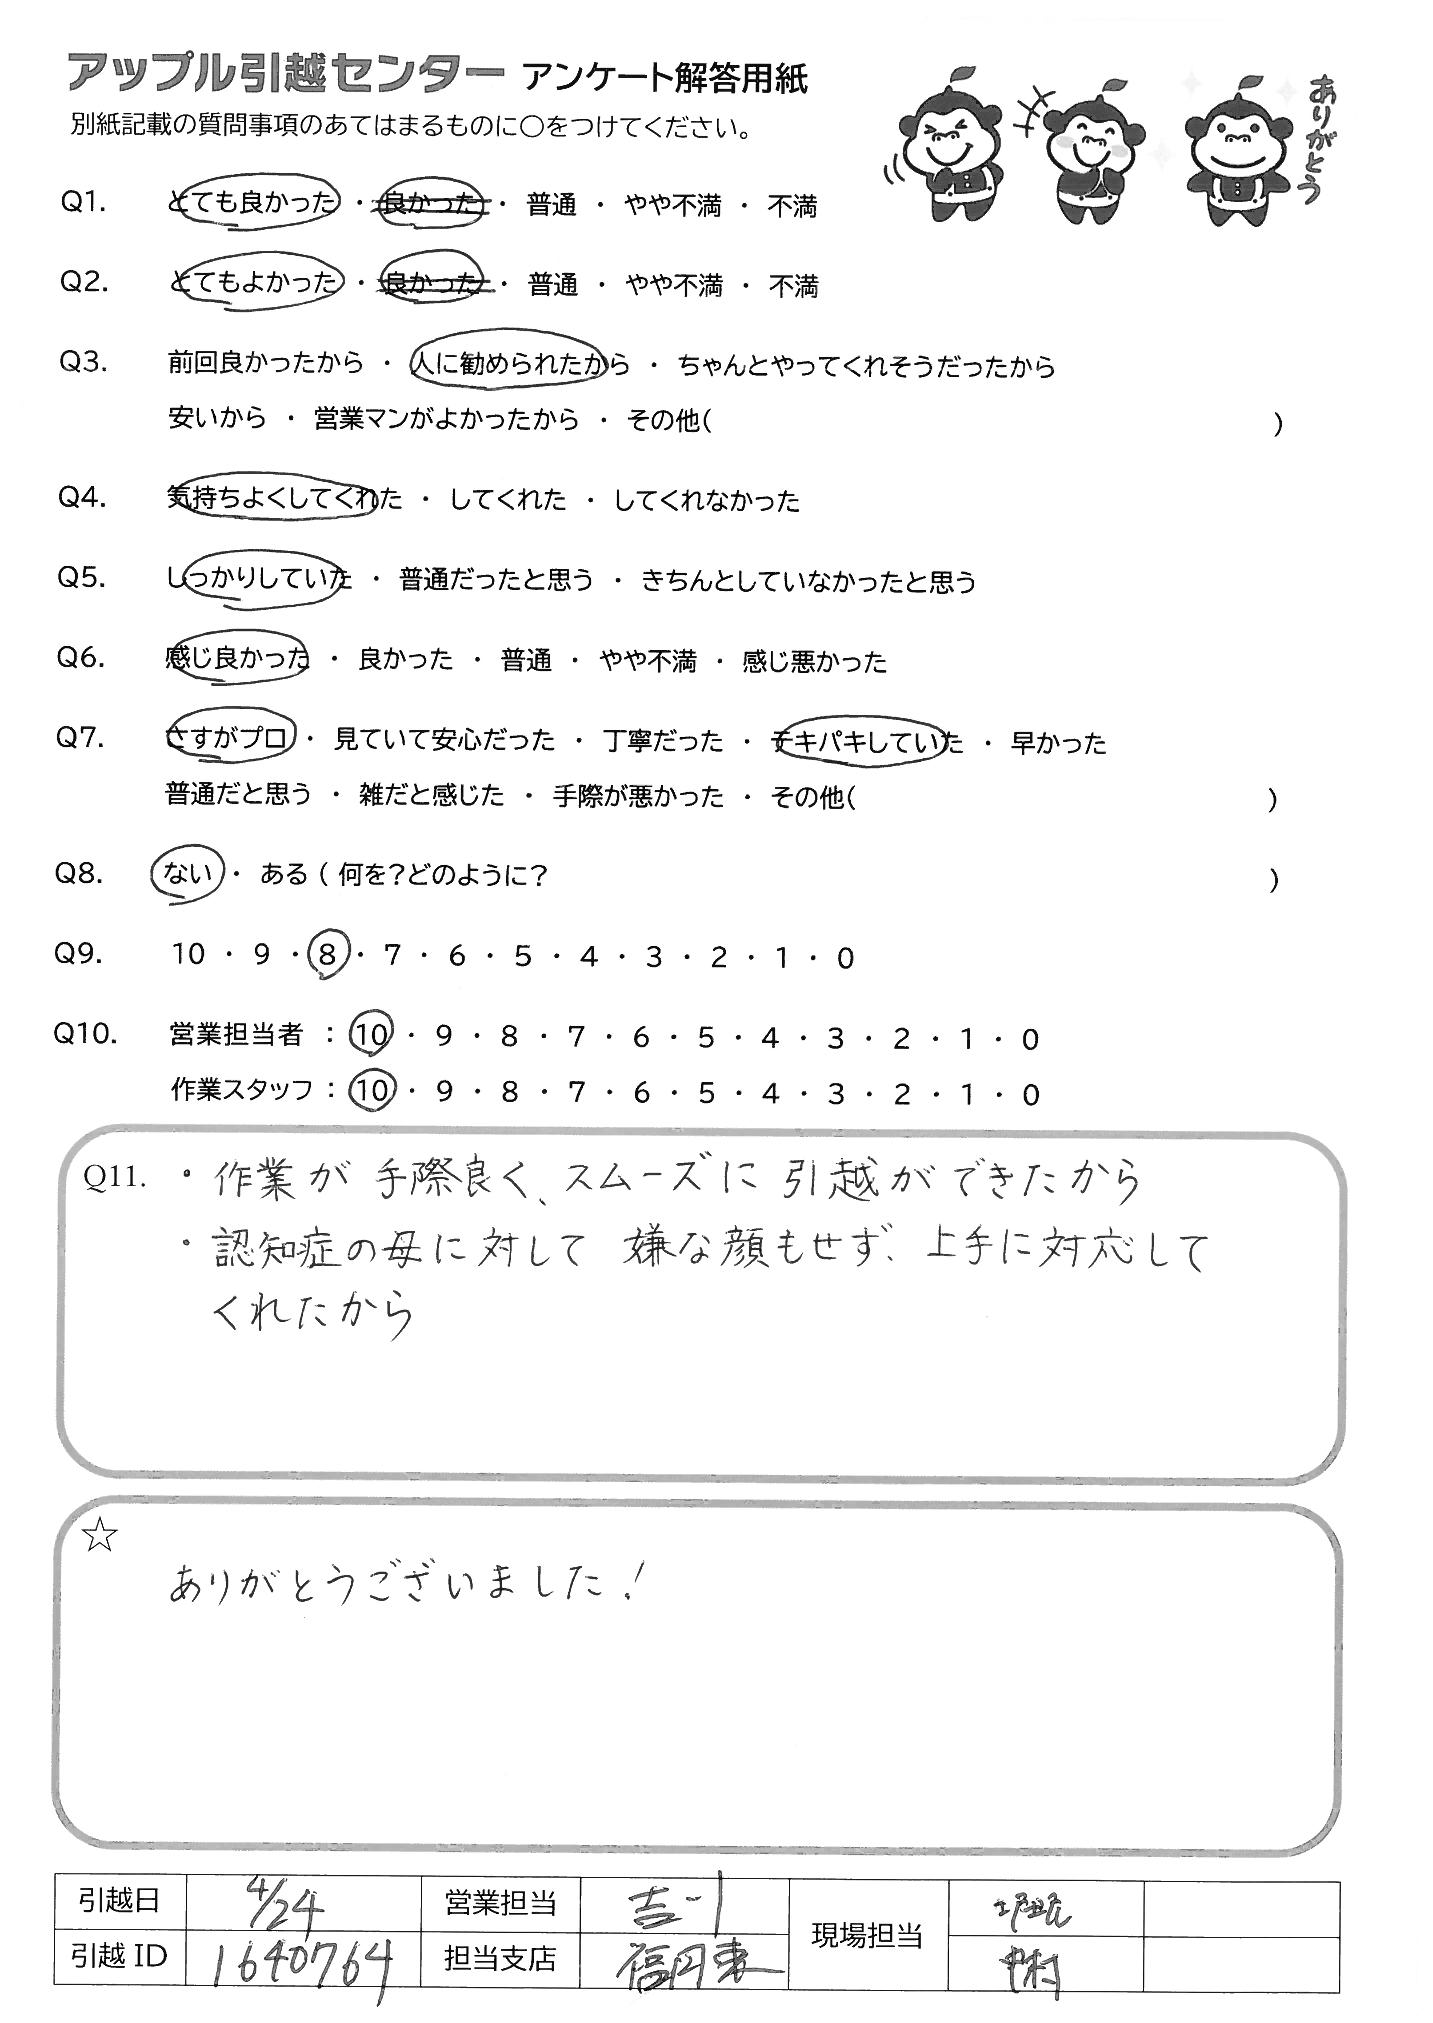 アップル引越センター アンケート解答用紙
別紙記載の質問事項のあてはまるものに○をつけてください。
ありがとう
Q1. とても良かった ・ 良かった ・ 普通 ・ やや不満 ・ 不満
Q2. とてもよかった ・ 良かった ・ 普通 ・ やや不満 ・ 不満
Q3. 前回良かったから ・ 人に勧められたから ・ ちゃんとやってくれそうだったから
安いから ・ 営業マンがよかったから ・ その他( )
Q4. 気持ちよくしてくれた ・ してくれた ・ してくれなかった
Q5. しっかりしていた ・ 普通だったと思う ・ きちんとしていなかったと思う
Q6. 感じ良かった ・ 良かった ・ 普通 ・ やや不満 ・ 感じ悪かった
Q7. さすがプロ ・ 見ていて安心だった ・ 丁寧だった ・ テキパキしていた ・ 早かった
普通だと思う ・ 雑だと感じた ・ 手際が悪かった ・ その他( )
Q8. ない ・ ある ( 何を?どのように? )
Q9. 10 ・ 9 ・ 8 ・ 7 ・ 6 ・ 5 ・ 4 ・ 3 ・ 2 ・ 1 ・ 0
Q10. 営業担当者 : 10 ・ 9 ・ 8 ・ 7 ・ 6 ・ 5 ・ 4 ・ 3 ・ 2 ・ 1 ・ 0
作業スタッフ : 10 ・ 9 ・ 8 ・ 7 ・ 6 ・ 5 ・ 4 ・ 3 ・ 2 ・ 1 ・ 0
Q11. ・作業が手際良く、スムーズに引越ができたから
・認知症の母に対して嫌な顔もせず、上手に対応して
くれたから
☆
ありがとうございました!
引越日 4/24 営業担当 現場担当
引越ID 1640764 担当支店 福岡東 中村